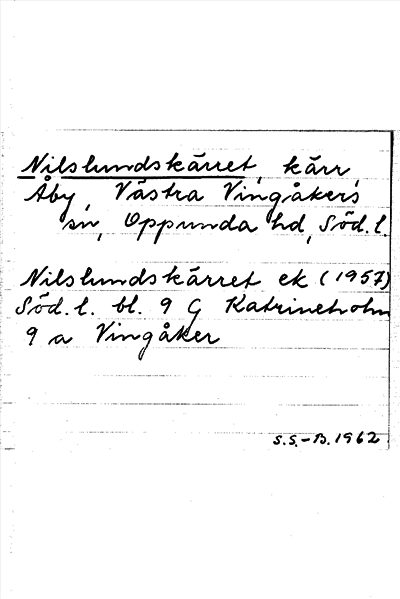 Nilslundskärret, kärr,
Åby, Västra Vingåkers
sn, Oppunda hd, Söd. l.
Nilslundskärret ek (1957)
Söd. l. bl. 9 G Katrineholm
9 a Vingåker
S.S.-B. 1962